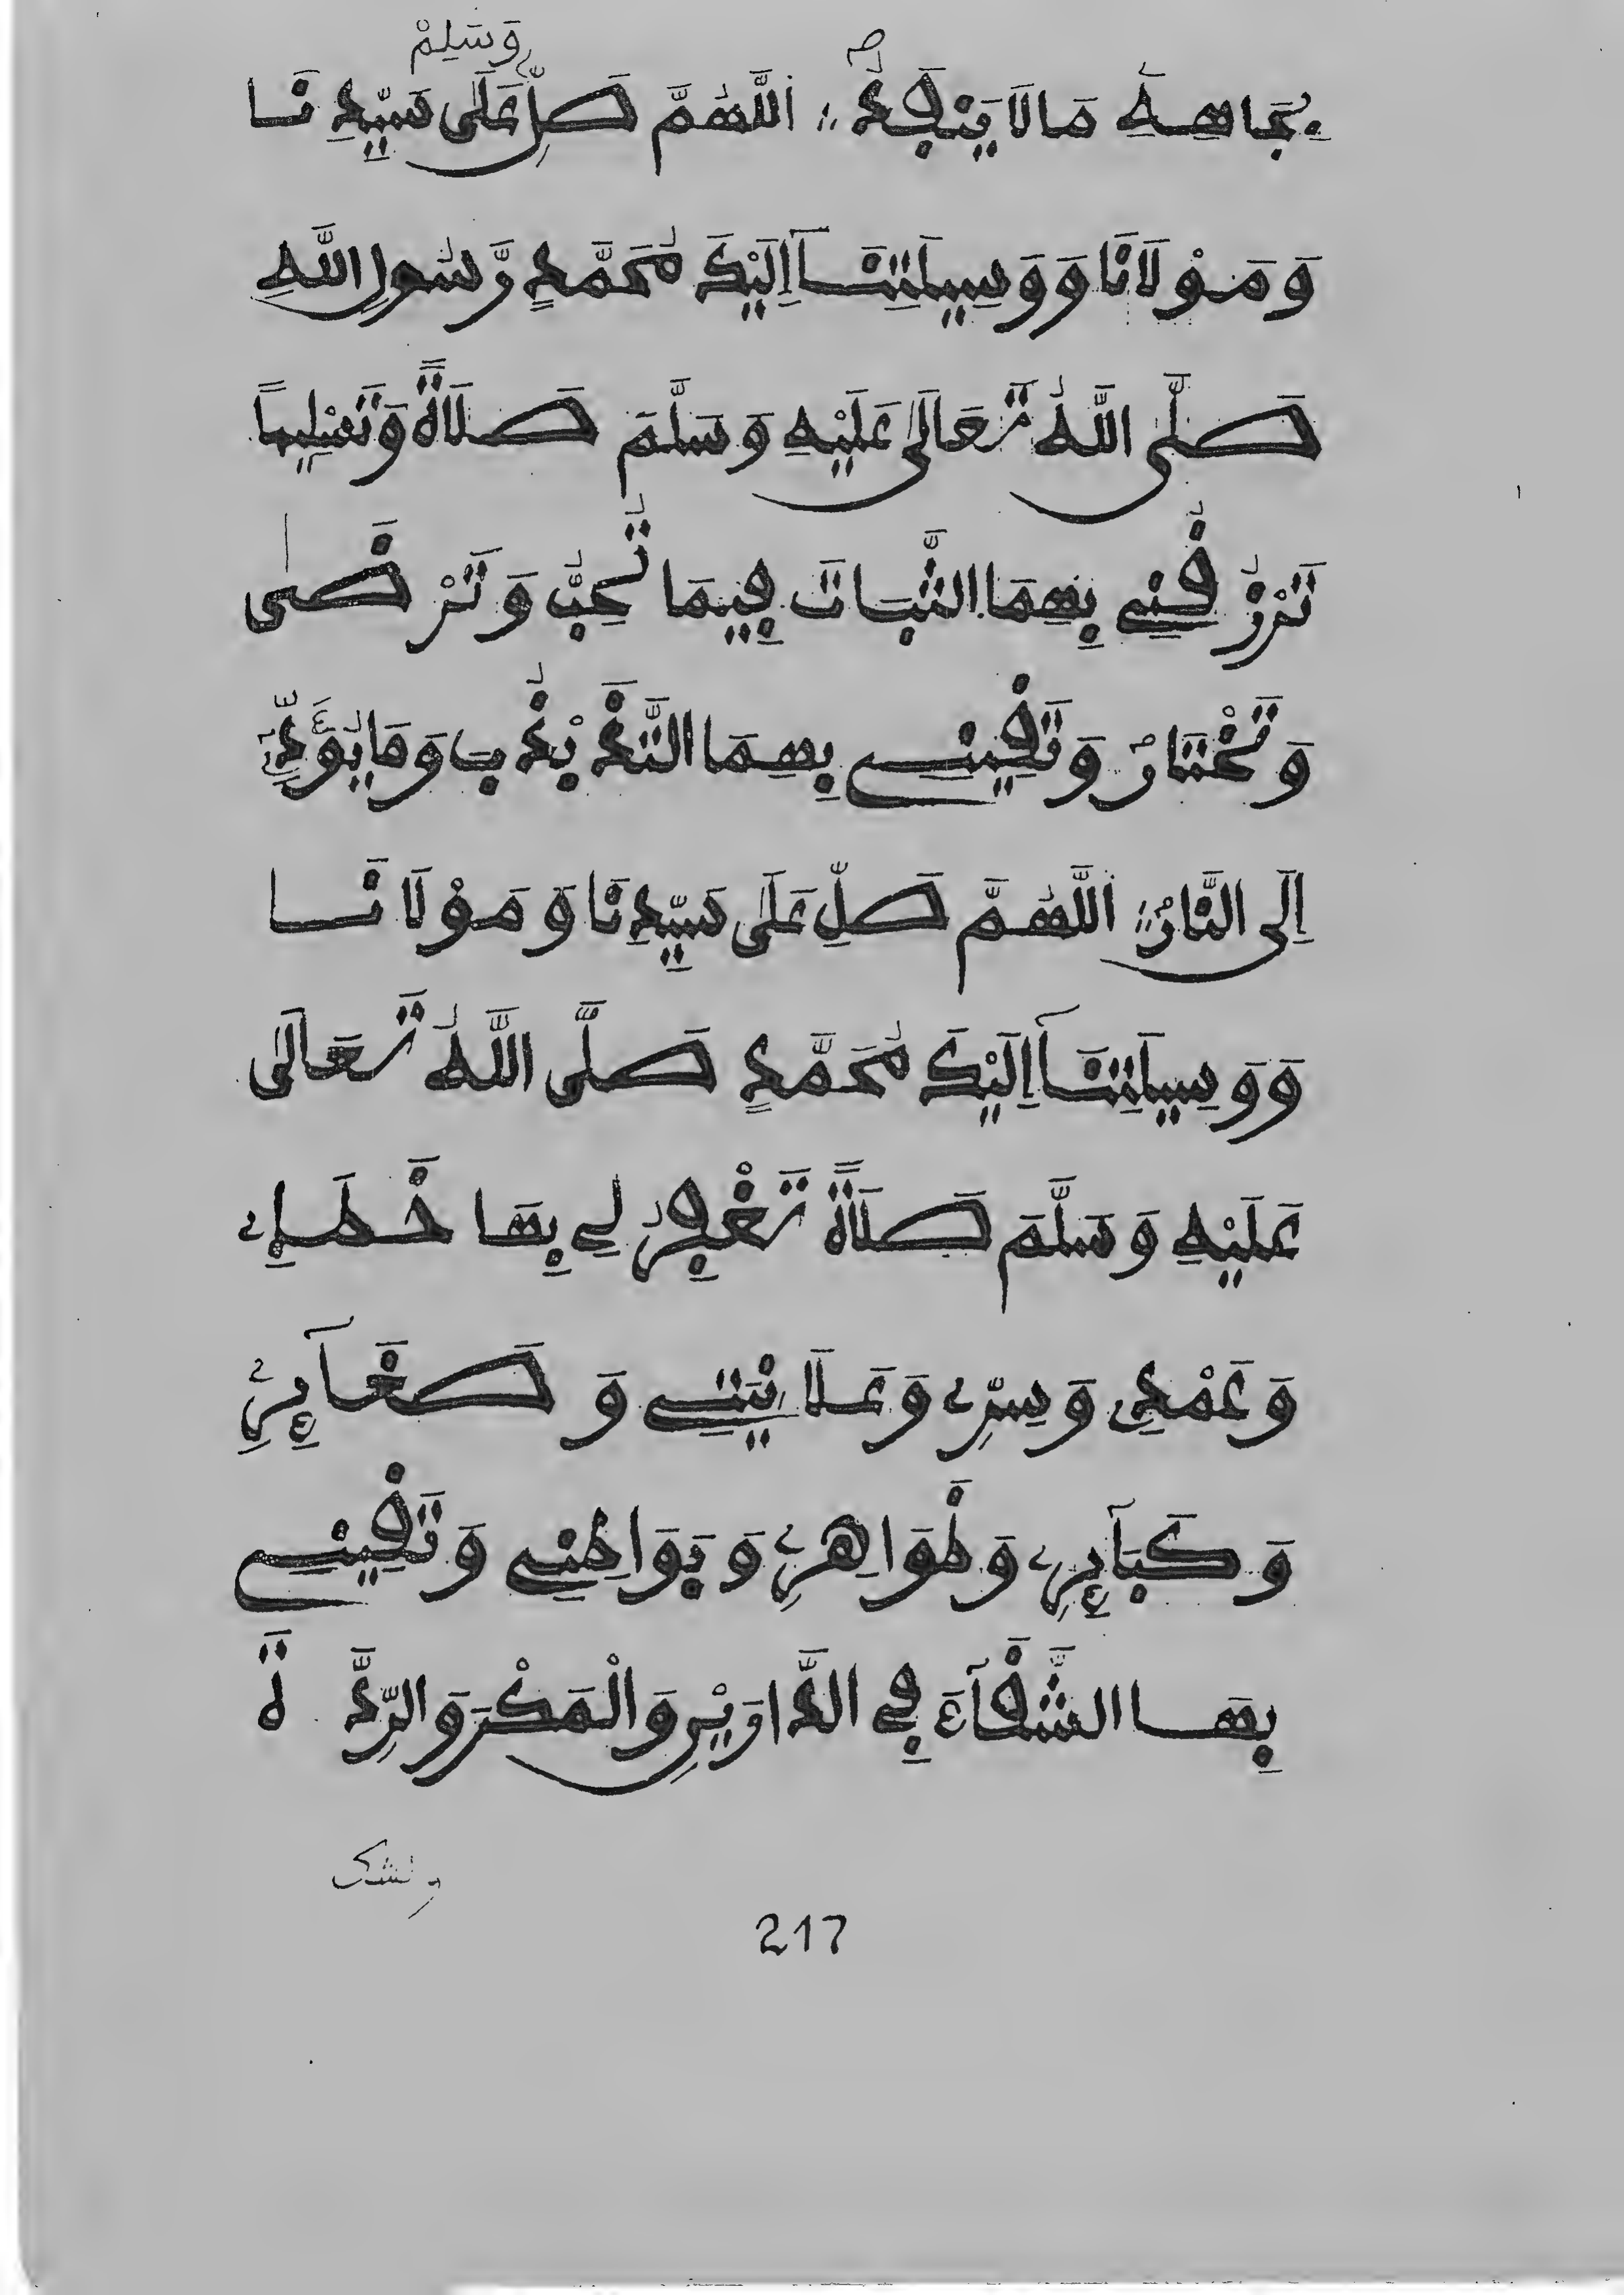 وَسَلِمْ
بِجَاهِهِ مَا لَا يَنفَدُ ؞ اللَّهُمَّ صَلِّ عَلَى سَيِّدِنَا
وَمَوْلَانَا وَوَسِيلَتِنَا إِلَيْكَ مُحَمَّدٍ رَّسُولِ اللَّهِ
صَلَّى اللَّهُ تَعَالَى عَلَيْهِ وَسَلَّمَ صَلَاةً وَتَسْلِيمًا
تَرْزُقُنِي بِهِمَا الثَّبَاتَ فِيمَا تُحِبُّ وَتَرْضَى
وَتَخْتَارُ وَتَقِينِي بِهِمَا التَّذَبْذُبَ وَمَا يُؤَدِّي
إِلَى النَّارِ ؞ اللَّهُمَّ صَلِّ عَلَى سَيِّدِنَا وَمَوْلَانَا
وَوَسِيلَتِنَا إِلَيْكَ مُحَمَّدٍ صَلَّى اللَّهُ تَعَالَى
عَلَيْهِ وَسَلَّمَ صَلَاةً تَغْفِرُ لِي بِهَا خَطَإِي
وَعَمْدِي وَسِرِّي وَعَلَانِيَتِي وَصَغَآئِرِي
وَكَبَآئِرِي وَظَوَاهِرِي وَبَوَاطِنِي وَتَقِينِي
بِهَا الشَّقَآءَ فِي الدَّارَيْنِ وَالْمَكْرَ وَالرِّدَّةَ
ولشك
217